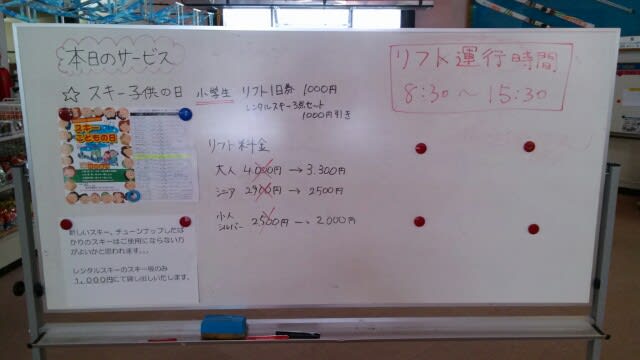 本日のサービス
☆ スキー子供の日 小学生 リフト1日券 1000円
レンタルスキー3点セット
1000円引き
スキー
こどもの日
リフト料金
大人 4000円 → 3.300円
シニア 2900円 → 2500円
小人
シルバー 2500円 --→ 2000円
リフト運行時間
8:30～15:30
新しいスキー、チューンナップしたば
かりのスキーはご使用にならない方
がよいかと思われます。。。
レンタルスキーのスキー板のみ
1,000円にて貸し出しいたします。